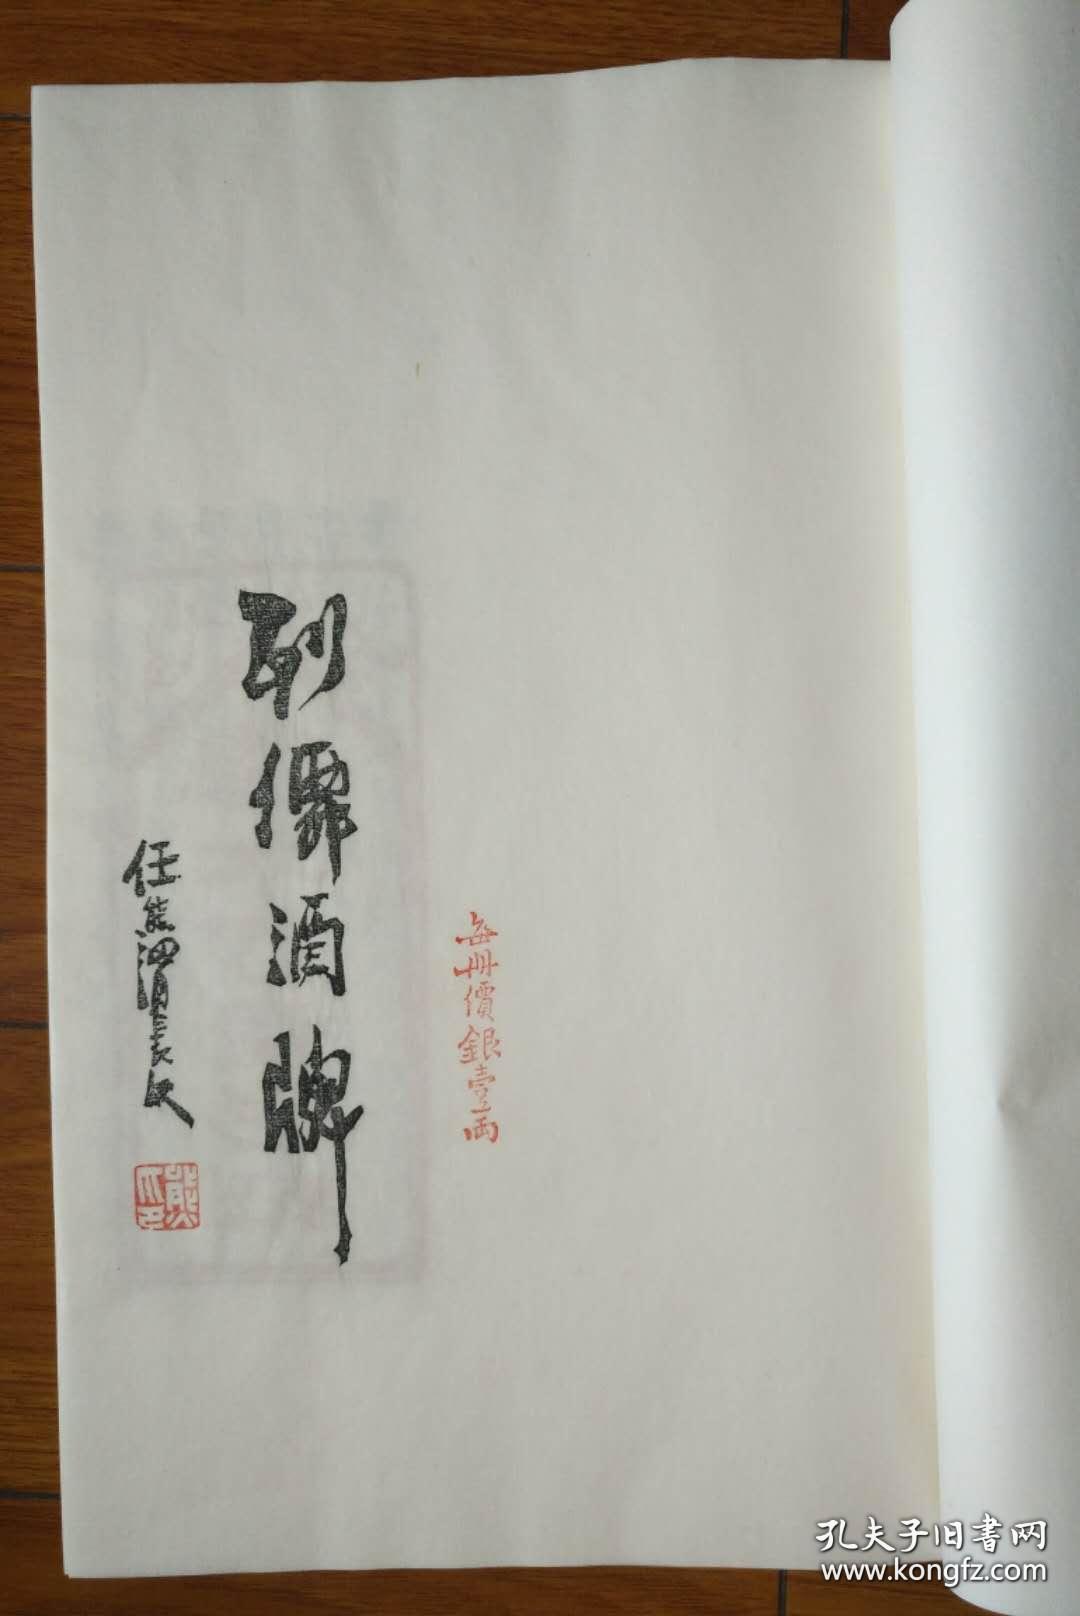 每冊價銀壹兩
列僊酒牌
任熊渭長父
孔夫子旧书网
www.kongfz.com